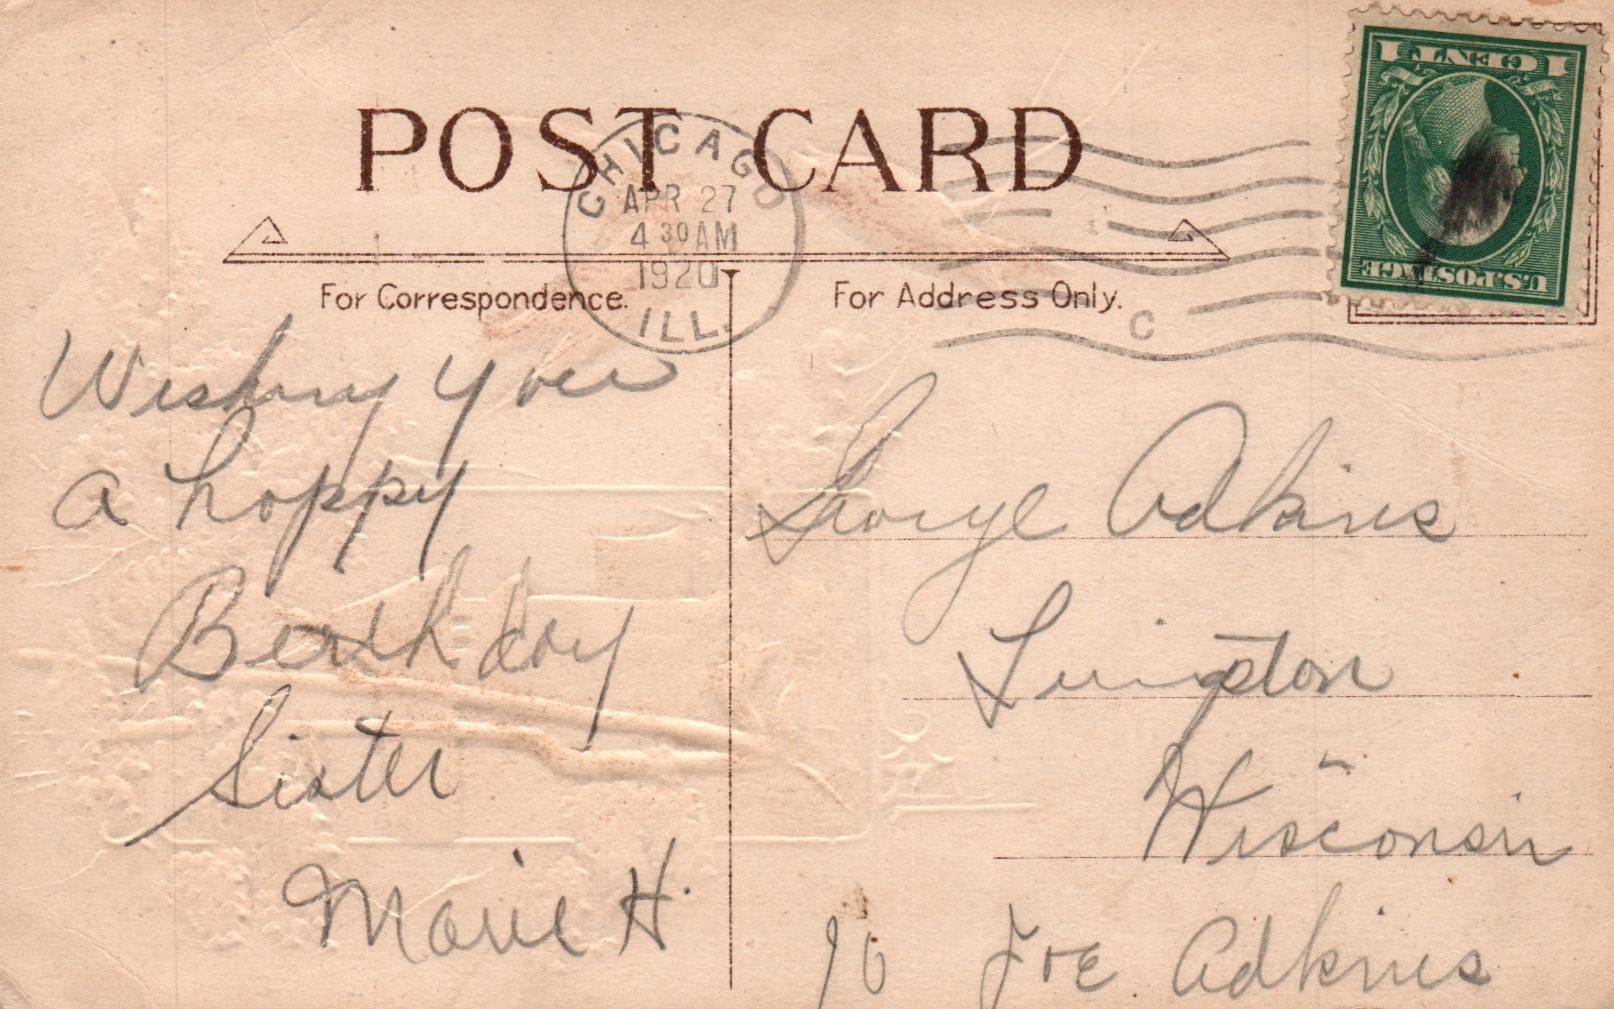 POST CARD
CHICAGO
APR 27
4 30 AM
1920
ILL.
C
1 CENT 1
U.S. POSTAGE
For Correspondence.
For Address Only.
Wishing you
a happy
Birthday
Sister
Marie H.
George Adkins
Livingston
Wisconsin
Joe Adkins